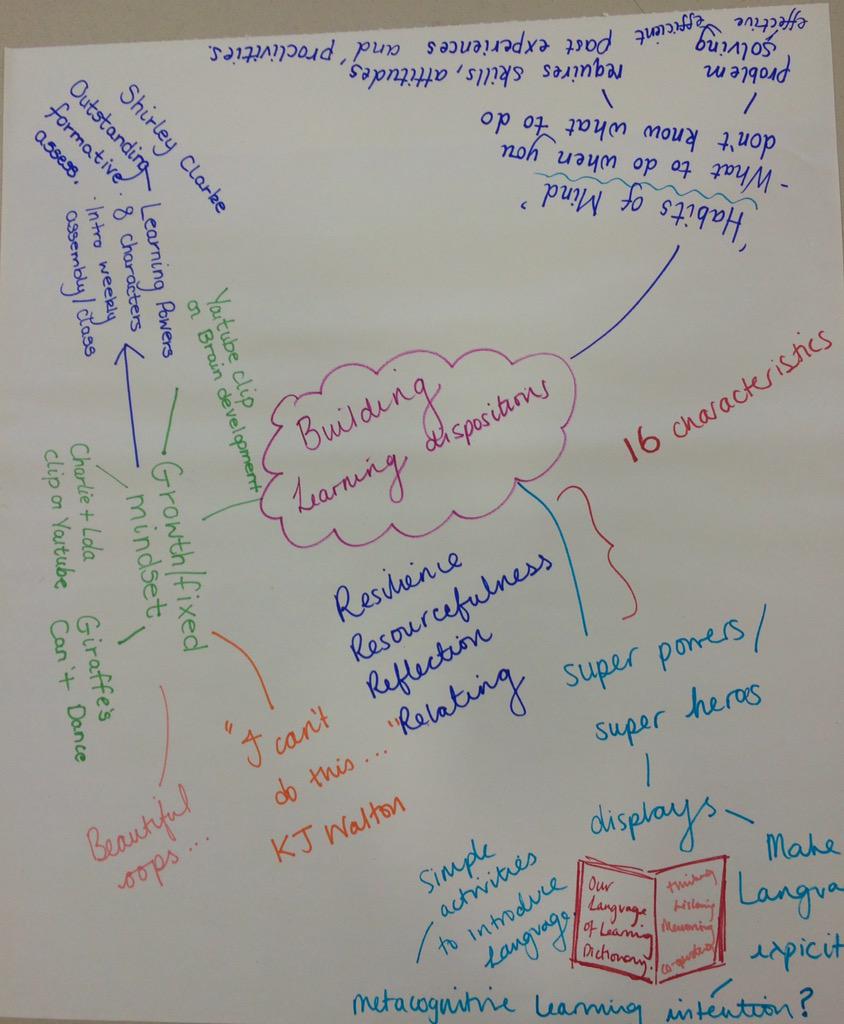 Building
Learning dispositions
'Habits of Mind'
- What to do when you
don't know what to do
problem
solving
effective
efficient
requires skills, attitudes
past experiences and 'proclivities.
16 characteristics
super powers/
super heroes
displays
Make
Langua
expicit
Our
Language
of Learning
Dictionary.
thinking
listening
co-operation
Simple
activities
to introduce
Language
metacognitive learning intention?
Resilience
Resourcefulness
Reflection
Relating
"I can't
do this..."
KJ Walton
Beautiful
oops...
Growth/fixed
mindset
Giraffe's
Can't Dance
Charlie + Lola
clip on Youtube
Youtube clip
on Brain development
Learning Powers
· 8 characters
· Intro weekly
assembly/class
Shirley Clarke
Outstanding
formative
assess.